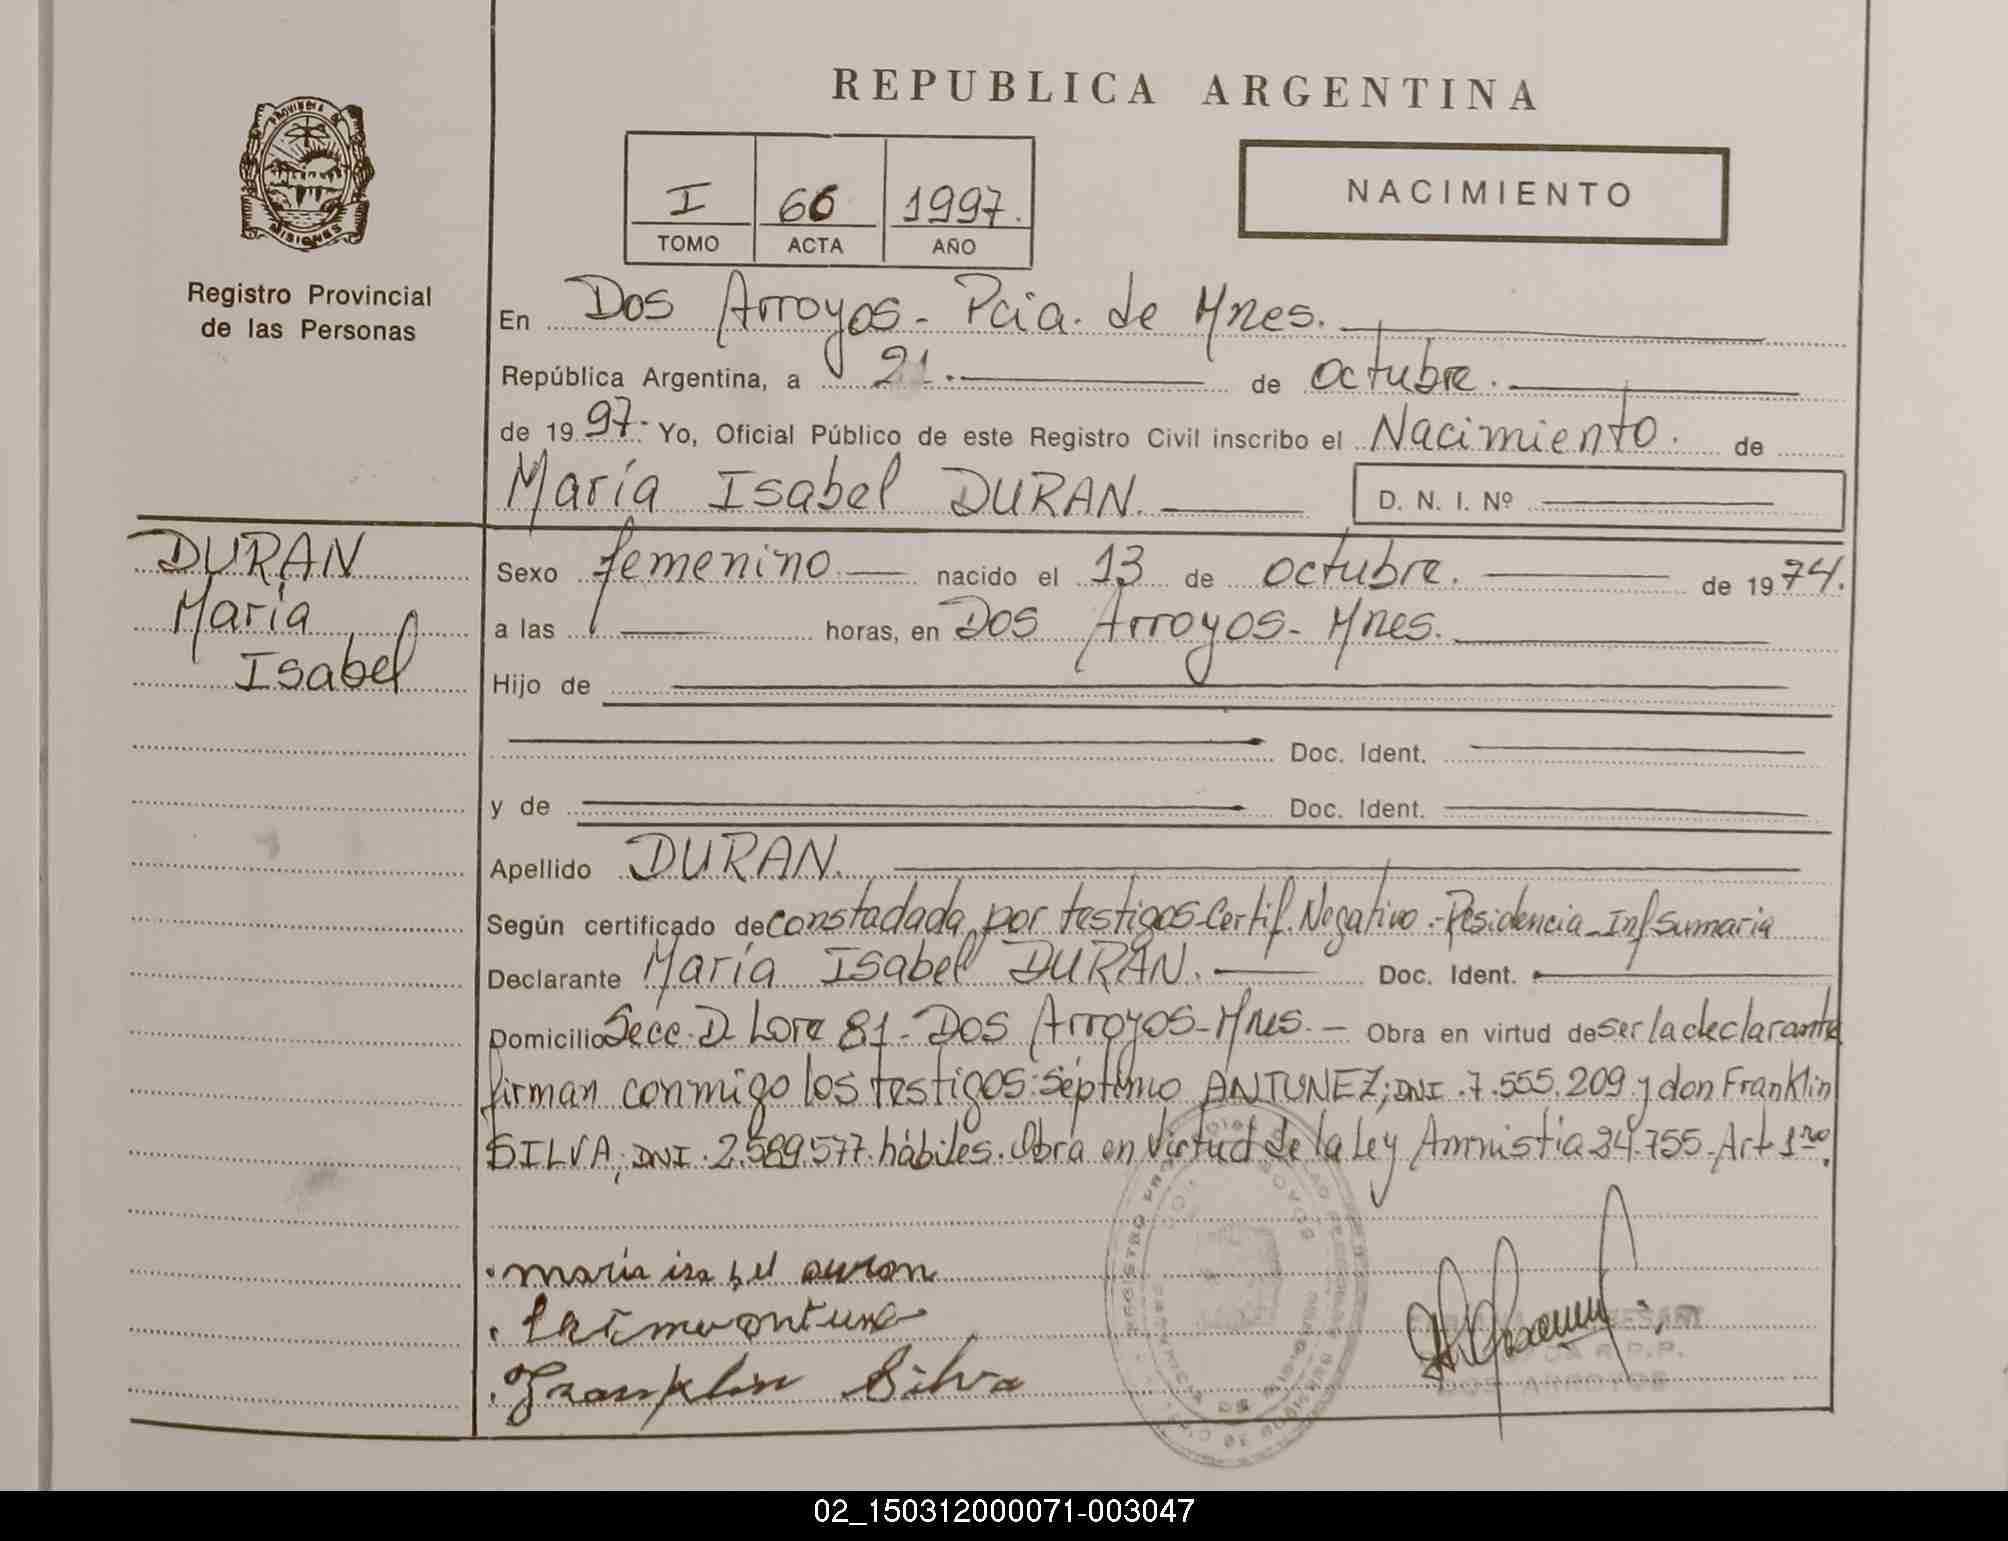 REPUBLICA ARGENTINA
PROVINCIA DE
MISIONES
Registro Provincial
de las Personas
I 66 1997.
TOMO ACTA AÑO
NACIMIENTO
En Dos Arroyos - Pcia. de Mnes.
República Argentina, a 21. de octubre.
de 1997. Yo, Oficial Público de este Registro Civil inscribo el Nacimiento. de
María Isabel DURAN. D. N. I. Nº
DURAN
María
Isabel
Sexo femenino nacido el 13 de octubre. de 1974.
a las horas, en Dos Arroyos - Mnes.
Hijo de
Doc. Ident.
y de Doc. Ident.
Apellido DURAN.
Según certificado de constadada por testigos-Certif. Negativo.-Residencia-Inf Sumaria
Declarante María Isabel DURAN. Doc. Ident.
Domicilio Secc. D Lote 81 - Dos Arroyos - Mnes. - Obra en virtud de ser la declarante
firman conmigo los testigos: Séptimo ANTUNEZ; DNI. 7.555.209 y don Franklin
SILVA; DNI. 2.589.577 hábiles. Obra en virtud de la Ley Amnistia 24.755 - Art 1ro.
maria isabel duran
Franklin Silva
DOS ARROYOS
02_150312000071-003047